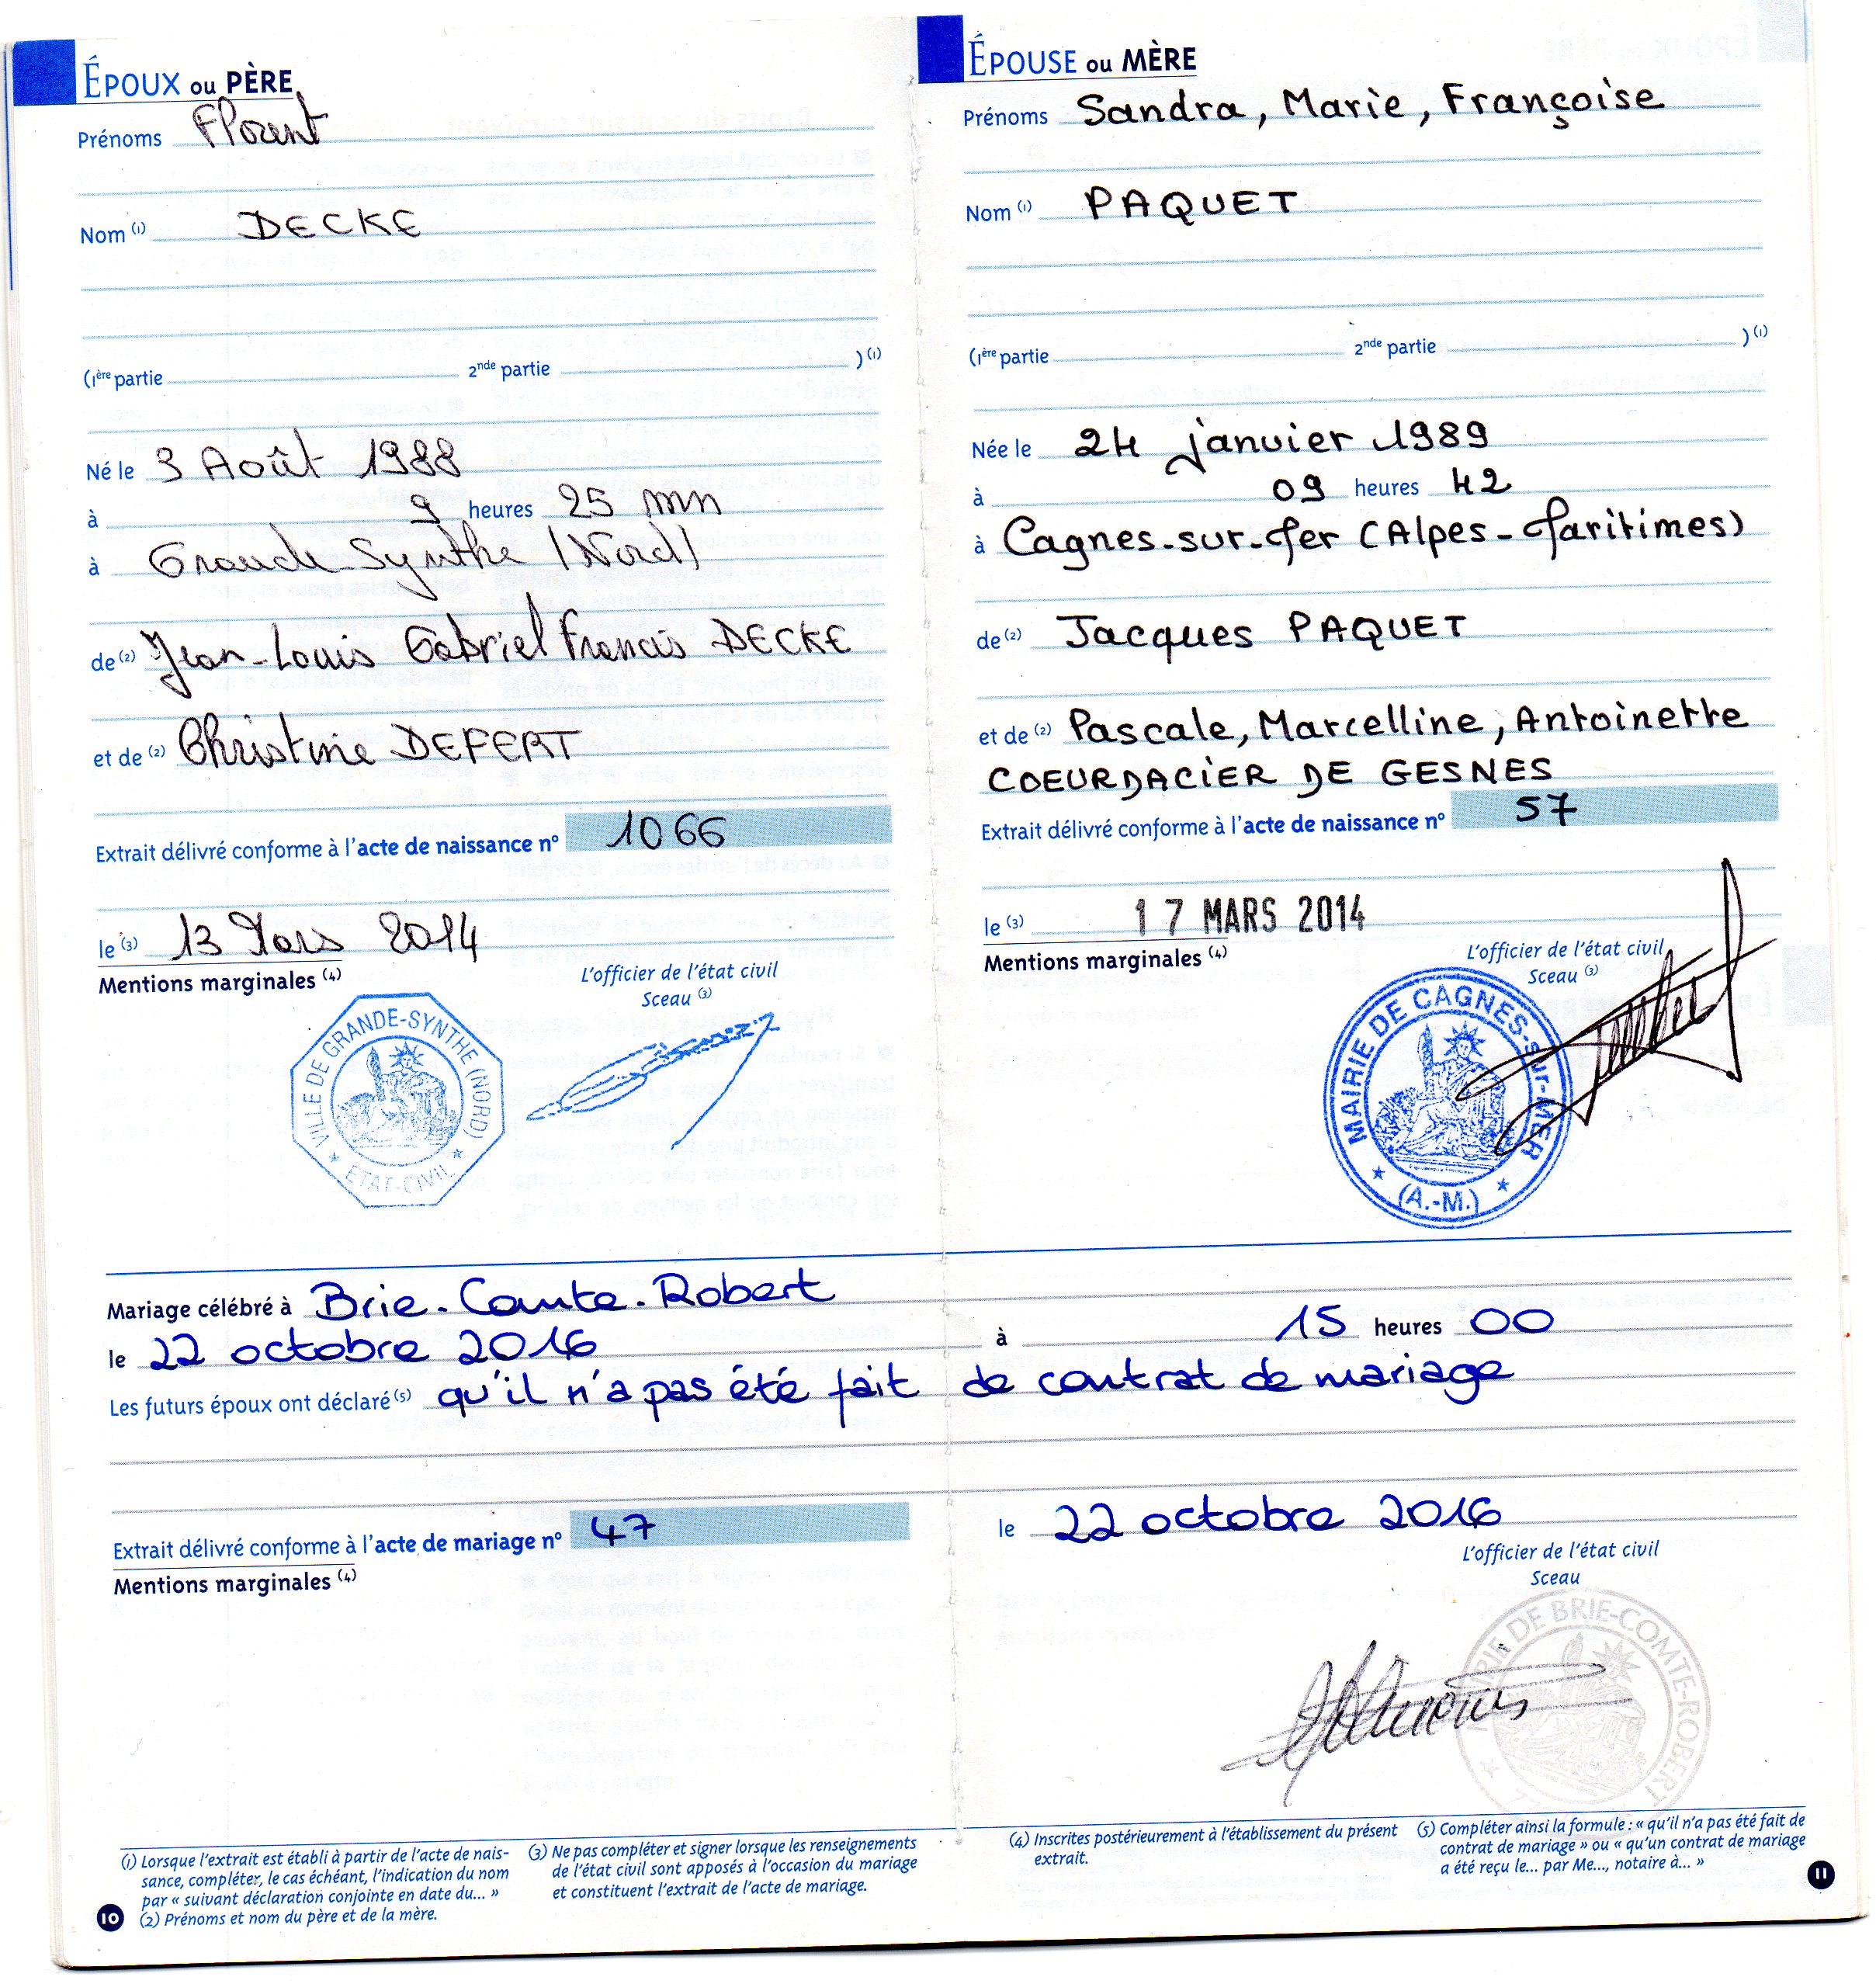 ÉPOUX ou PÈRE
Prénoms Florent
Nom (1) DECKE
(1ère partie 2nde partie ) (1)
Né le 3 Août 1988
à 9 heures 25 mn
à Grande-Synthe (Nord)
de (2) Jean-Louis Gabriel Francis DECKE
et de (2) Christine DEFERT
Extrait délivré conforme à l'acte de naissance n° 1066
le (3) 13 Mars 2014
Mentions marginales (4)
L'officier de l'état civil
Sceau (3)
VILLE DE GRANDE-SYNTHE (NORD)
★ ETAT-CIVIL ★
ÉPOUSE ou MÈRE
Prénoms Sandra, Marie, Françoise
Nom (1) PAQUET
(1ère partie 2nde partie ) (1)
Née le 24 janvier 1989
à 09 heures 42
à Cagnes-sur-Mer (Alpes-Maritimes)
de (2) Jacques PAQUET
et de (2) Pascale, Marcelline, Antoinette
COEURDACIER DE GESNES
Extrait délivré conforme à l'acte de naissance n° 57
le (3) 17 MARS 2014
Mentions marginales (4)
L'officier de l'état civil
Sceau (3)
MAIRIE DE CAGNES-sur-MER
★ (A.-M.) ★
Mariage célébré à Brie-Comte-Robert
le 22 octobre 2016 à 15 heures 00
Les futurs époux ont déclaré (5) qu'il n'a pas été fait de contrat de mariage
Extrait délivré conforme à l'acte de mariage n° 47 le 22 octobre 2016
Mentions marginales (4)
L'officier de l'état civil
Sceau
MAIRIE DE BRIE-COMTE-ROBERT
(1) Lorsque l'extrait est établi à partir de l'acte de nais-
sance, compléter, le cas échéant, l'indication du nom
par « suivant déclaration conjointe en date du... »
(2) Prénoms et nom du père et de la mère.
(3) Ne pas compléter et signer lorsque les renseignements
de l'état civil sont apposés à l'occasion du mariage
et constituent l'extrait de l'acte de mariage.
(4) Inscrites postérieurement à l'établissement du présent
extrait.
(5) Compléter ainsi la formule : « qu'il n'a pas été fait de
contrat de mariage » ou « qu'un contrat de mariage
a été reçu le... par Me..., notaire à... »
10
11